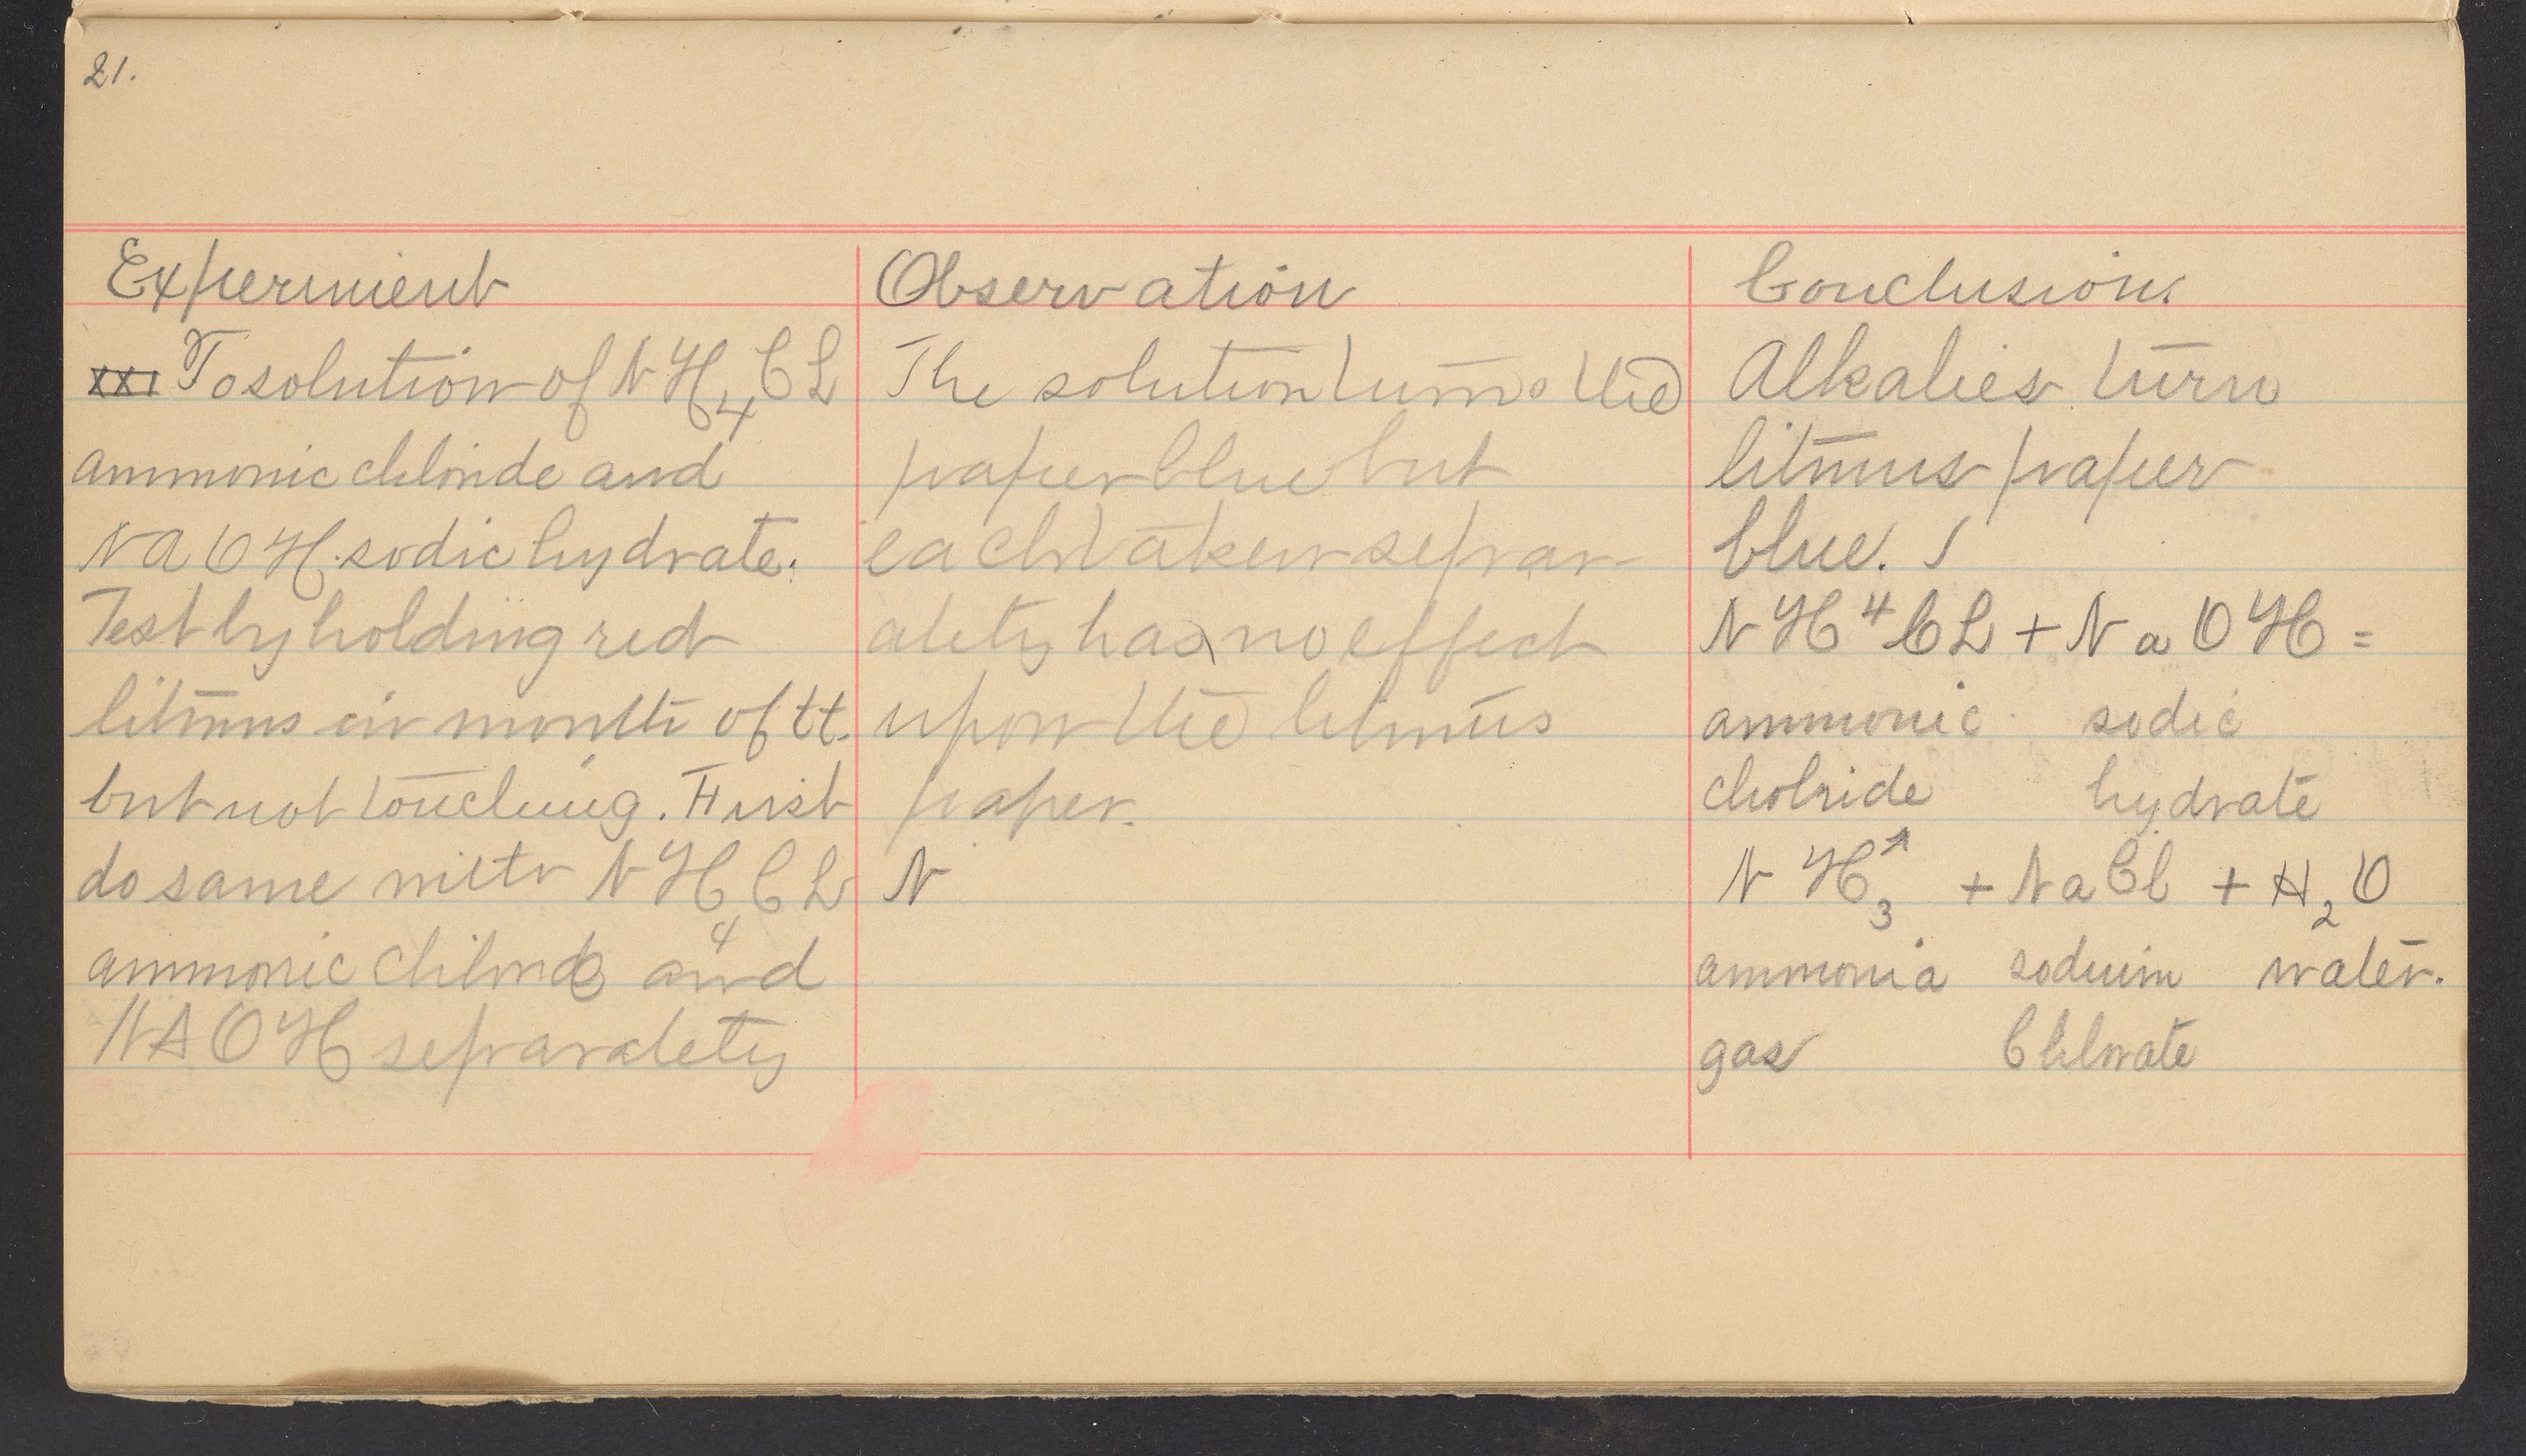 21.
Experiment
XXI To solution of NH4CL
ammonic chloride and
NaOH. sodic hydrate.
Test by holding red
litmus in mouth of tt.
but not touching. First
do same with NH4CL
ammonic chloride and
NAOH separalety
Observation
The solution turns the
paper blue but
each taken separ-
alety has no effect
upon the litmus
paper.
N
Conclusion.
Alkalies turn
litmus paper
blue.
NH4CL + NaOH =
ammonic sodic
cholride hydrate
NH3↑ + NaCl + H2O
ammonia sodium water.
gas Chlorate